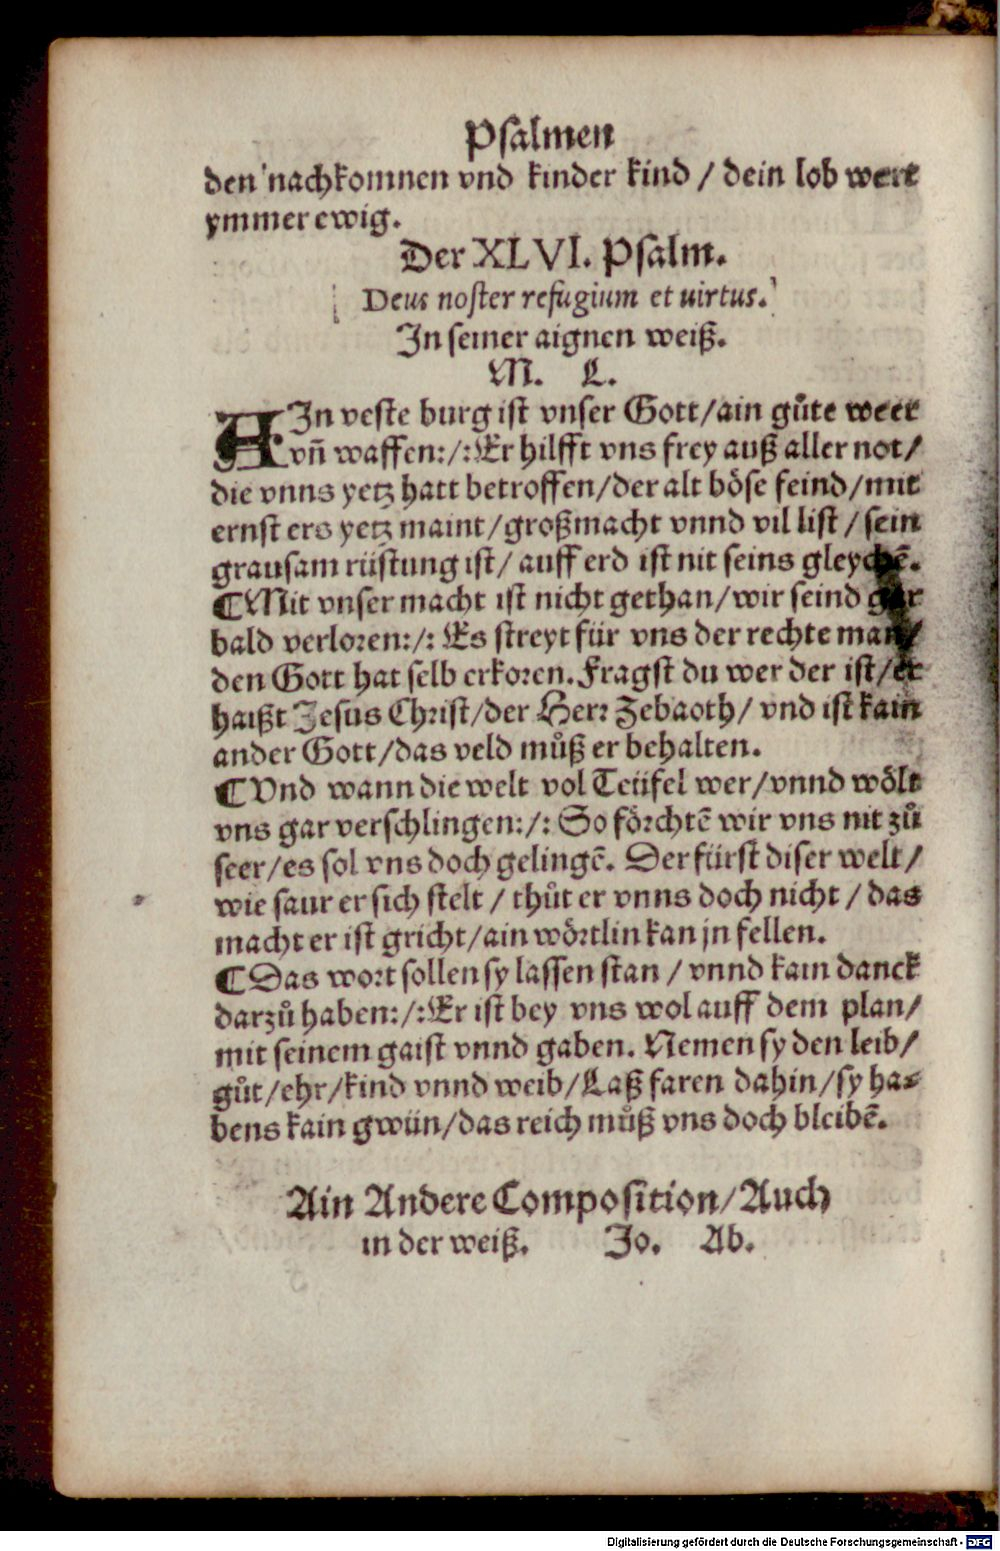 Psalmen
den nachkomnen vnd kinder kind / dein lob wert
ymmer ewig.
Der XLVI. Psalm.
Deus noster refugium et uirtus.
In seiner aignen weiß.
M. L.
AIn veste burg ist vnser Gott/ain gůte weer
vñ waffen:/:Er hilfft vns frey auß aller not/
die vnns yetz hatt betroffen/der alt böse feind/mit
ernst ers yetz maint/großmacht vnnd vil list / sein
grausam rüstung ist/ auff erd ist nit seins gleychē.
¶Mit vnser macht ist nicht gethan/wir seind gar
bald verloren:/: Es streyt für vns der rechte man/
den Gott hat selb erkoren. Fragst du wer der ist/er
haißt Jesus Christ/der Herr Zebaoth/ vnd ist kain
ander Gott/das veld můß er behalten.
¶Vnd wann die welt vol Teüfel wer/vnnd wölt
vns gar verschlingen:/: So förchtē wir vns nit zů
seer/es sol vns doch gelingē. Der fürst diser welt/
wie saur er sich stelt / thůt er vnns doch nicht / das
macht er ist gricht/ain wörtlin kan jn fellen.
¶Das wort sollen sy lassen stan / vnnd kain danck
darzů haben:/:Er ist bey vns wol auff dem plan/
mit seinem gaist vnnd gaben. Nemen sy den leib/
gůt/ehr/kind vnnd weib/Laß faren dahin/sy ha⸗
bens kain gwün/das reich můß vns doch bleibē.
Ain Andere Composition/Auch
in der weiß. Jo. Ab.
Digitalisierung gefördert durch die Deutsche Forschungsgemeinschaft - DFG